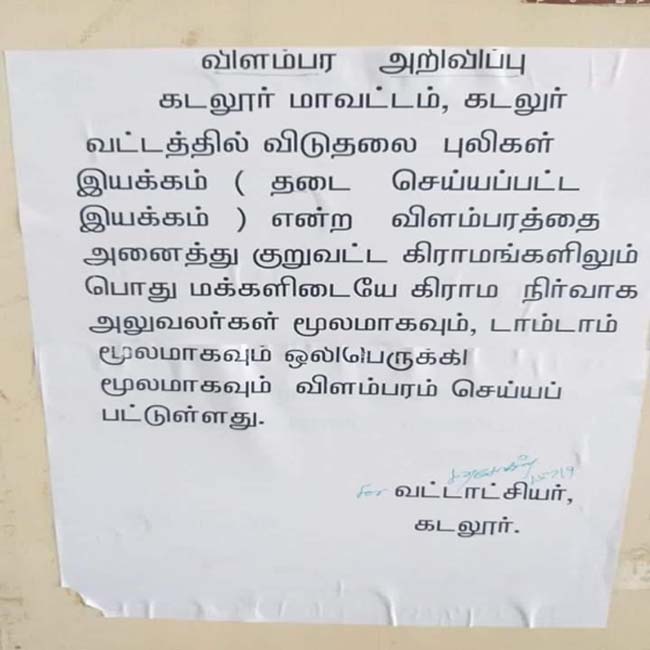 விளம்பர அறிவிப்பு
கடலூர் மாவட்டம், கடலுர்
வட்டத்தில் விடுதலை புலிகள்
இயக்கம் ( தடை செய்யப்பட்ட
இயக்கம் ) என்ற விளம்பரத்தை
அனைத்து குறுவட்ட கிராமங்களிலும்
பொது மக்களிடையே கிராம நிர்வாக
அலுவலர்கள் மூலமாகவும், டாம்டாம்
மூலமாகவும் ஒலிபெருக்கி
மூலமாகவும் விளம்பரம் செய்யப்
பட்டுள்ளது.
for வட்டாட்சியர்,
கடலூர்.